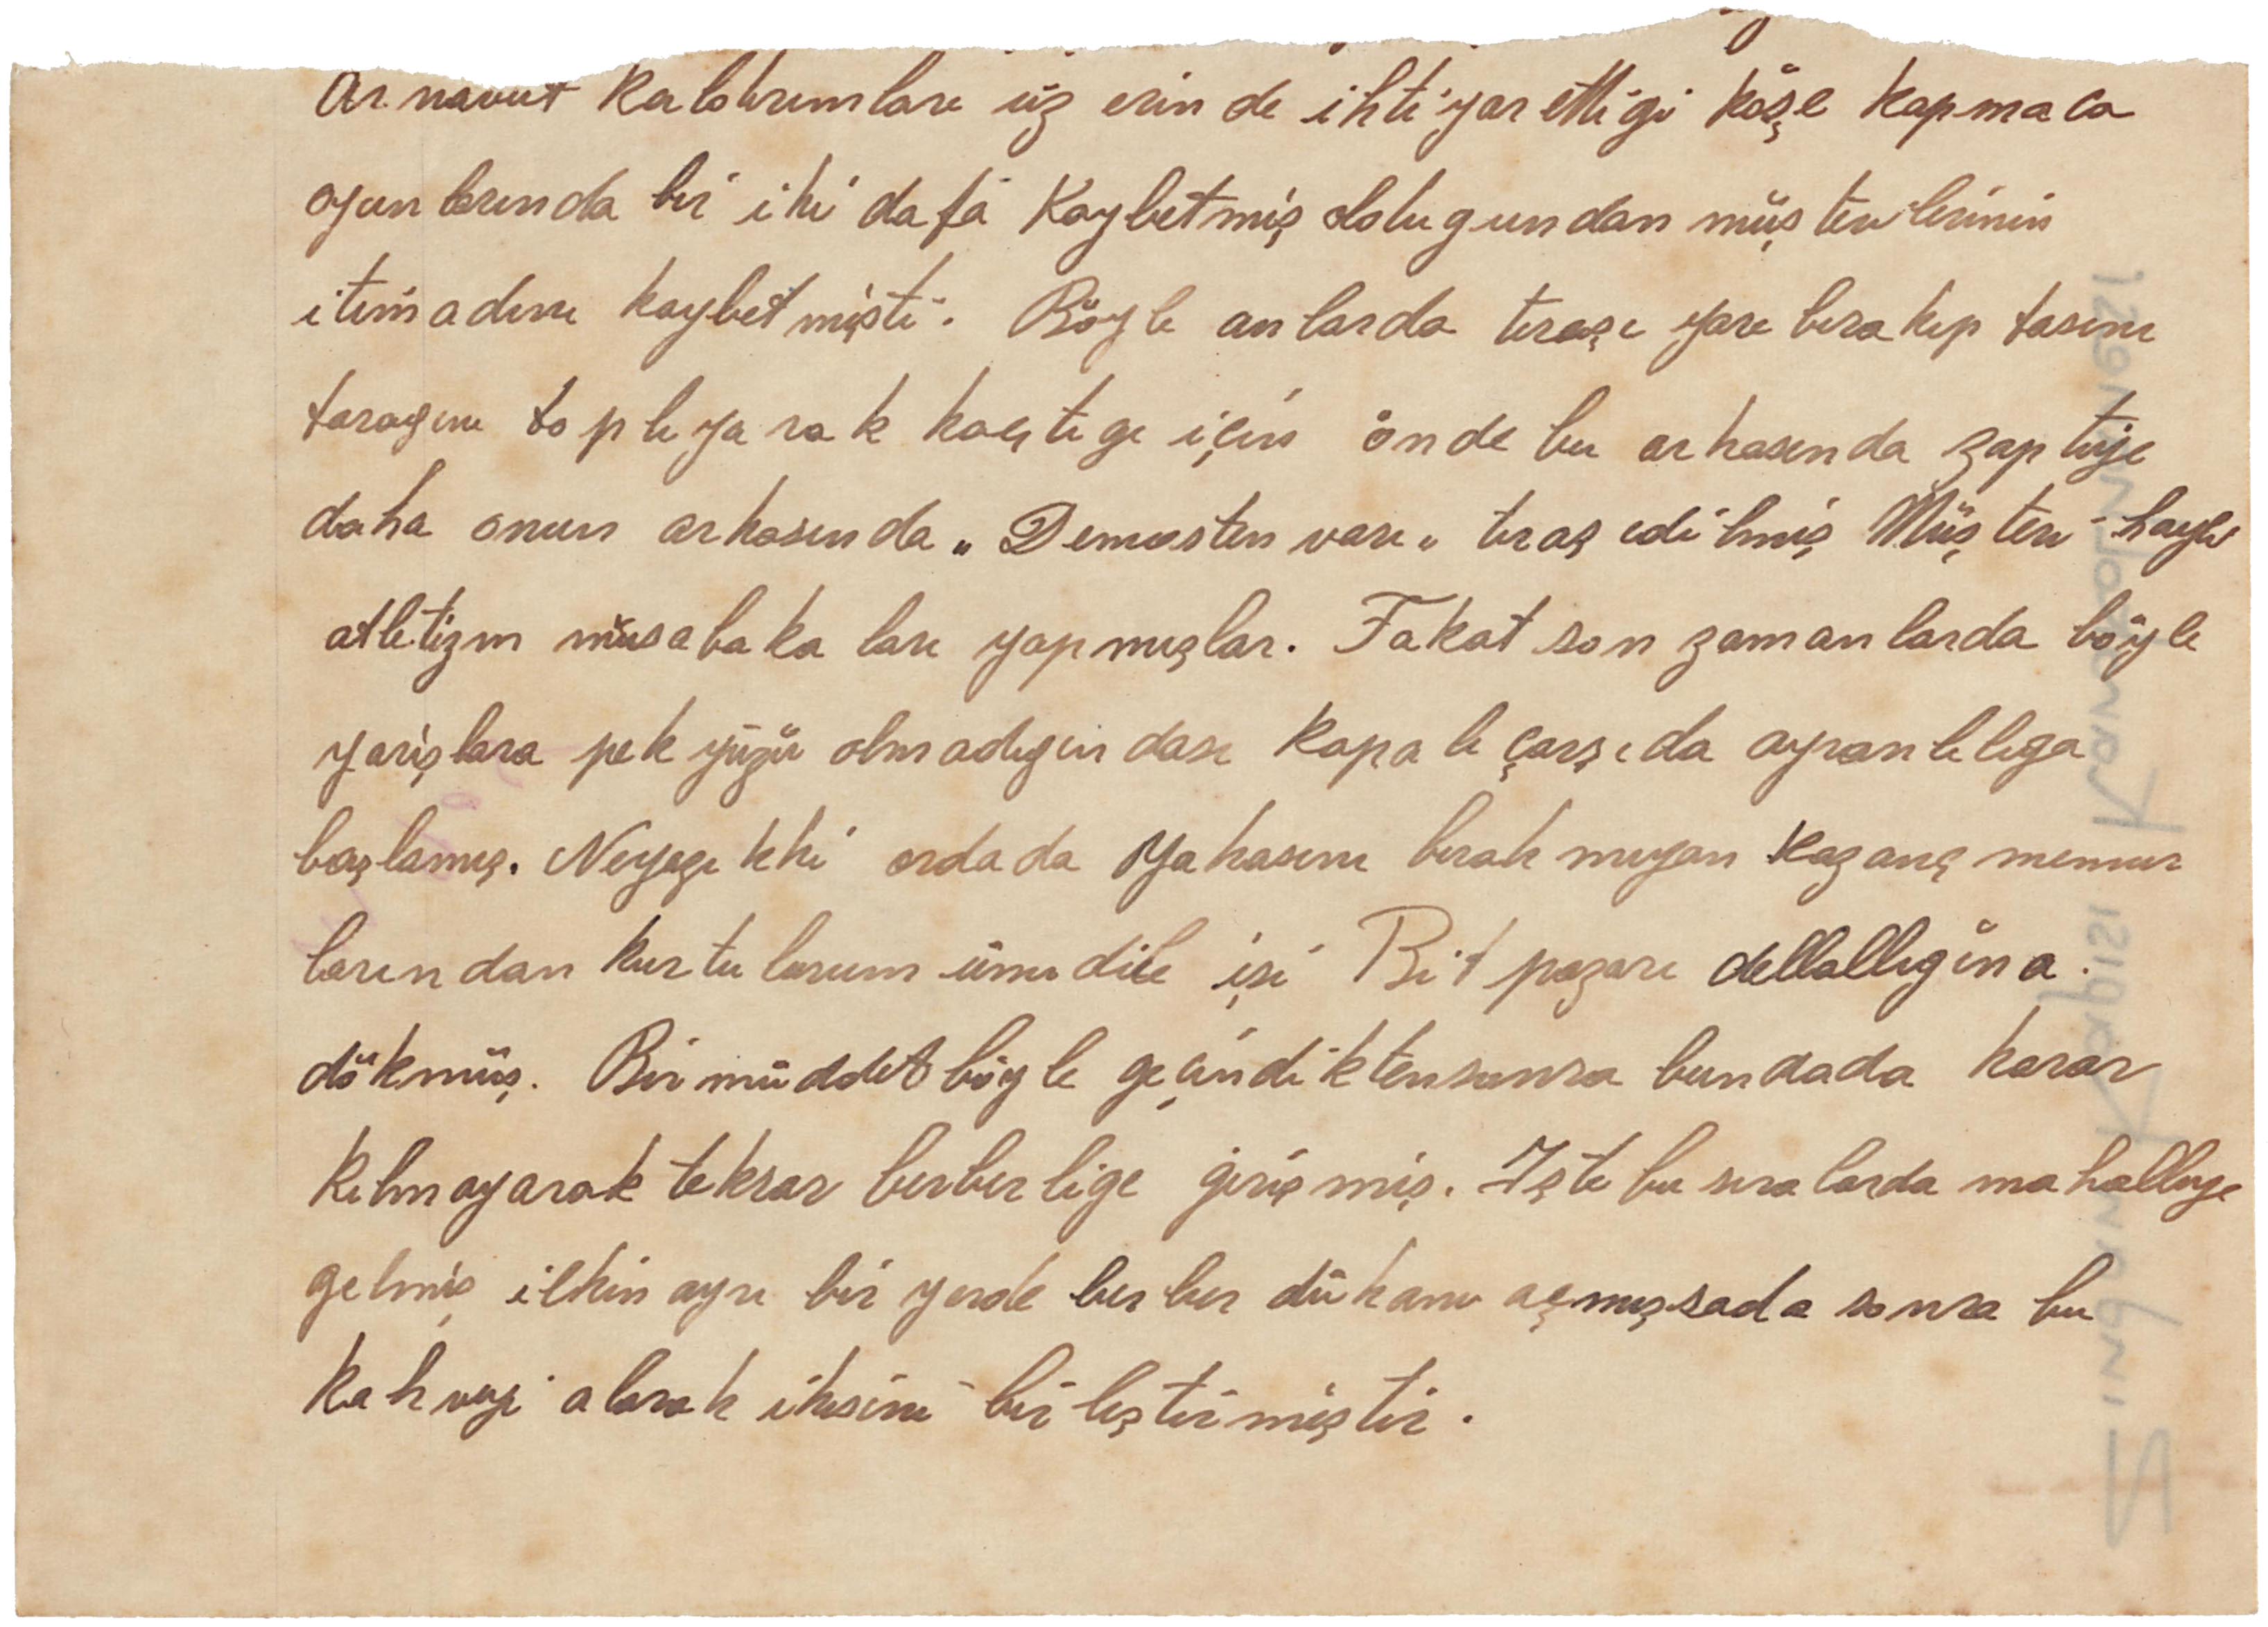 Arnavut kaldırımları üzerinde ihtiyar ettiği köşe kapmaca
oyunlarında bir iki dafa kaybetmiş oldugundan müşterilerinin
itimadını kaybetmişti. Böyle anlarda tıraşı yarı bırakıp tasını
taragını toplıyarak kaçtıgı için önde bu arkasında zaptiye
daha onun arkasında „Demosten vari„ tıraş edilmiş Müşteri hayli
atletizm müsabakaları yapmışlar. Fakat son zamanlarda böyle
yarişlara pek yüzü olmadıgındası kapalı çarşıda ayranlılıga
başlamış. Neyazıkki ordada yakasını bırakmıyan kazanç memur
larından kurtulurum ümidile işi Bit pazarı dellallıgına
dökmüş. Bir müddet böyle geçindiktensonra bundada karar
kılmayarak tekrar berberlige girişmiş. İşte bu sıralarda mahalliye
gelmiş ilkin ayrı bir yerde berber dükanı açmışsada sonra bu
kahveyi alarak ikisini birleştirmiştir.
Zindani Kapısı Karakolundan